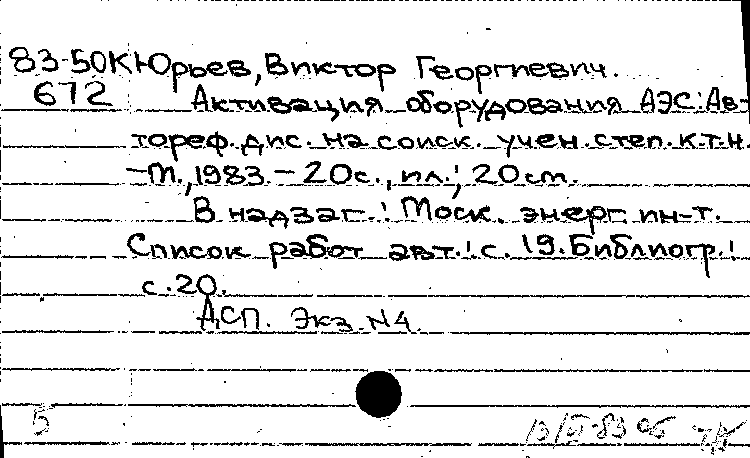 83-50К Юрьев, Виктор Георгиевич.
672 Активация оборудования АЭС: Ав-
тореф. дис. на соиск. учен. степ. к.т.н.
-М., 1983. - 20с., ил.; 20см.
В надзаг.: Моск. энерг. ин-т.
Список работ авт.: с. 19. Библиогр.:
с. 20.
ДСП. Экз. N4.
5 13/VI-83